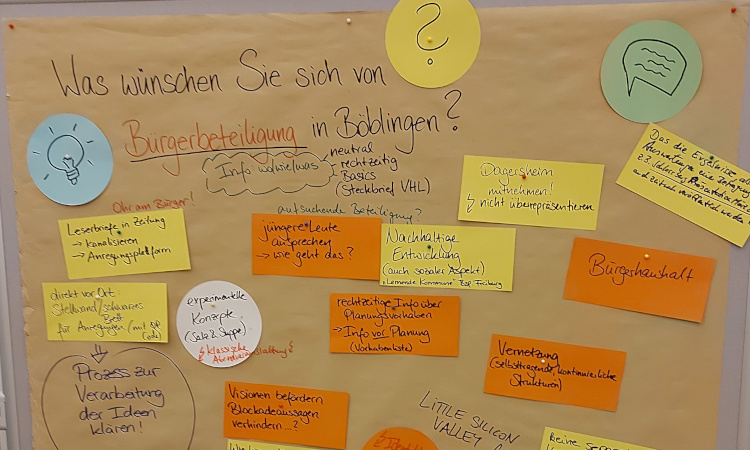 ?
Was wünschen Sie sich von
Bürgerbeteiligung in Böblingen?
Info wo/wie/was
neutral
rechtzeitig
Basics
(Steckbrief VHL)
Dagersheim
mitnehmen!
nicht überrepräsentieren
Das die Ergebnisse
Auswertung eine
und zeitnah veröffentlicht werden
Ohr am Bürger!
Leserbriefe in Zeitung
→ kanalisieren
→ Anregungsplattform
aufsuchende Beteiligung?
jüngere Leute
ansprechen
→ wie geht das?
Nachhaltige
Entwicklung
(auch sozialer Aspekt)
Lernende Kommune Bsp. Freiburg
Bürgerhaushalt
direkt vor Ort:
Stellwand/schwarzes
Brett
für Anregungen (mit QR
experimentelle
Konzepte
(Salz & Suppe)
klassische
Abendveranstaltung
rechtzeitige Info über
Planungsvorhaben
→ Info vor Planung
(Vorhabenliste)
Vernetzung
(selbsttragende, kontinuierliche
Strukturen)
Prozess zur
Verarbeitung
der Ideen
klären!
Visionen befördern
Blockadeaussagen
verhindern...?
LITTLE SILICON
VALLEY
Keine